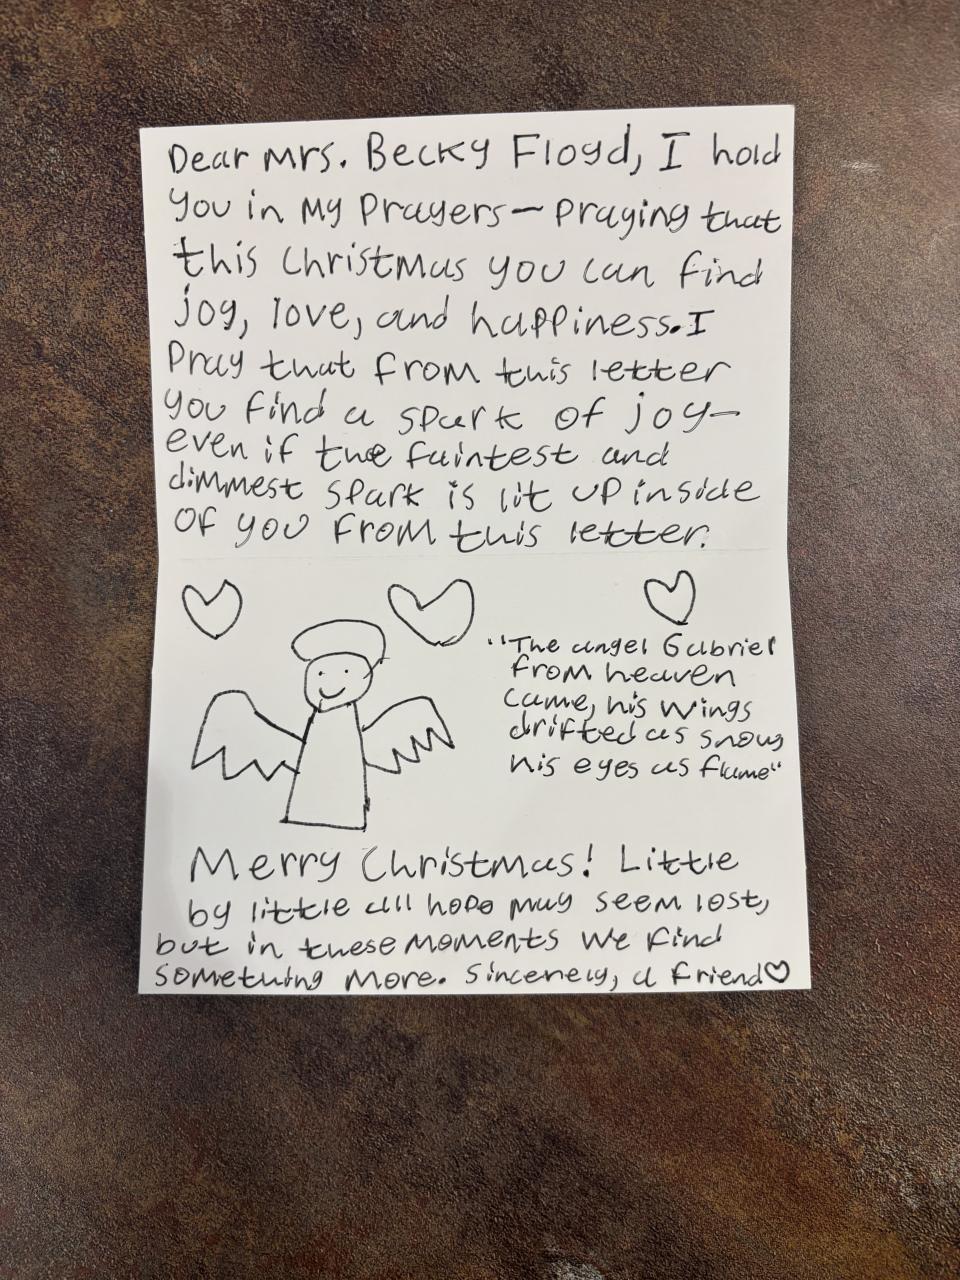 Dear Mrs. Becky Floyd, I hold
you in my prayers— praying that
this Christmas you can find
joy, love, and happiness. I
pray that from this letter
you find a spark of joy—
even if the faintest and
dimmest spark is lit up inside
of you from this letter.
"The angel Gabriel
from heaven
came, his wings
drifted as snow,
his eyes as flame"
Merry Christmas! Little
by little all hope may seem lost,
but in these moments we find
something more. Sincerely, a friend♡